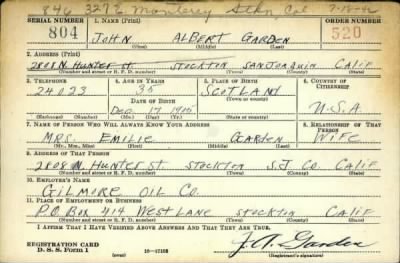 846 327 E Monterey Stkn, Cal 7-18-42
SERIAL NUMBER 1. NAME (Print) ORDER NUMBER
804 JOHN ALBERT GARDEN 520
(First) (Middle) (Last)
2. ADDRESS (Print)
2808 N. HUNTER ST. STOCKTON SAN JOAQUIN CALIF
(Number and street or R. F. D. number) (Town) (County) (State)
3. TELEPHONE 4. AGE IN YEARS 5. PLACE OF BIRTH 6. COUNTRY OF CITIZENSHIP
24023 35 SCOTLAND
DATE OF BIRTH (Town or county)
DEC. 17 1905 U.S.A.
(Exchange) (Number) (Mo.) (Day) (Yr.) (State or country)
7. NAME OF PERSON WHO WILL ALWAYS KNOW YOUR ADDRESS 8. RELATIONSHIP OF THAT PERSON
MRS. EMILIE GARDEN WIFE
(Mr., Mrs., Miss) (First) (Middle) (Last)
9. ADDRESS OF THAT PERSON
2808 N. HUNTER ST. STOCKTON S.J. CO. CALIF
(Number and street or R. F. D. number) (Town) (County) (State)
10. EMPLOYER'S NAME
GILMORE OIL CO.
11. PLACE OF EMPLOYMENT OR BUSINESS
P.O. BOX 414 WEST LANE STOCKTON CALIF
(Number and street or R. F. D. number) (Town) (County) (State)
I AFFIRM THAT I HAVE VERIFIED ABOVE ANSWERS AND THAT THEY ARE TRUE.
REGISTRATION CARD
D. S. S. Form 1 (over) 16-17105 J. A. Garden
(Registrant's signature)